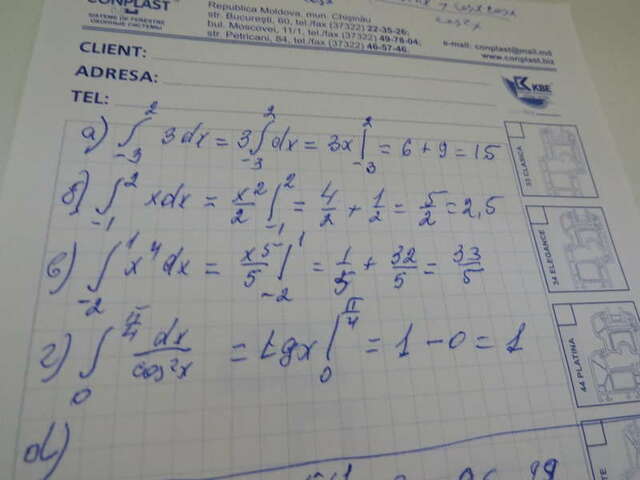 CONPLAST
SISTEME DE FERESTRE
ОКОННЫЕ СИСТЕМЫ
Republica Moldova, mun. Chișinău
str. București, 60, tel./fax (37322) 22-35-26;
bul. Moscovei, 11/1, tel./fax (37322) 49-78-04;
str. Petricani, 84, tel./fax (37322) 46-57-46.
cos²x
e-mail: conplast@mail.md
www.conplast.biz
CLIENT:
ADRESA:
TEL:
KBE
а) ∫₋₃² 3dx = 3∫₋₃² dx = 3x|₋₃² = 6 + 9 = 15
б) ∫₋₁² xdx = x²/2 |₋₁² = 4/2 + 1/2 = 5/2 = 2,5
в) ∫₋₂¹ x⁴dx = x⁵/5 |₋₂¹ = 1/5 + 32/5 = 33/5
г) ∫₀^(π/4) dx/cos²x = tgx|₀^(π/4) = 1 − 0 = 1
d)
33 CLASICA
34 ELEGANCE
44 PLATINA